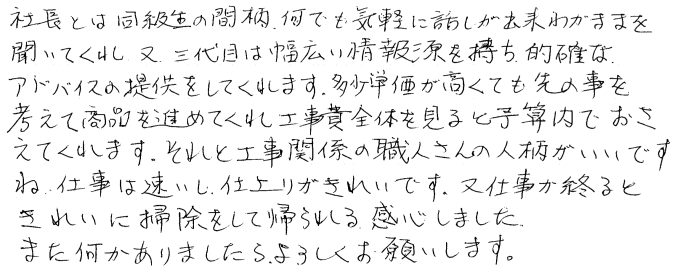 社長とは同級生の間柄、何でも気軽に話しが出来わがままを
聞いてくれ、又、三代目は幅広い情報源を持ち、的確な
アドバイスの提供をしてくれます。多少単価が高くても先の事を
考えて商品を進めてくれ工事費全体を見ると予算内でおさ
えてくれます。それと工事関係の職人さんの人柄がいいです
ね、仕事は速いし、仕上りがきれいです。又仕事が終ると
きれいに掃除をして帰られる、感心しました。
また何かありましたら、よろしくお願いします。